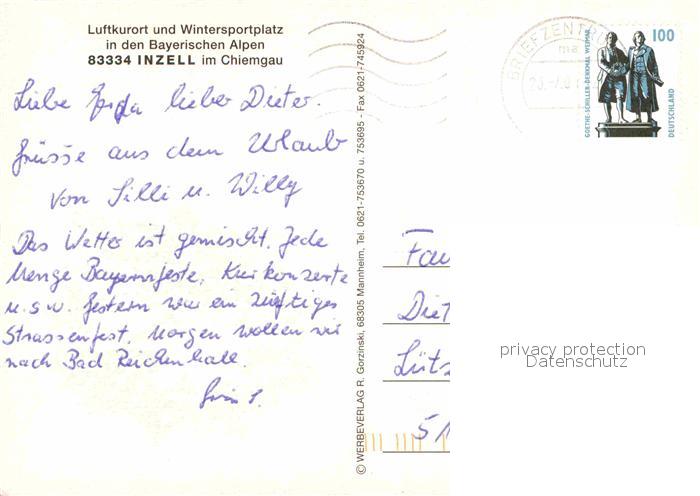 Luftkurort und Wintersportplatz
in den Bayerischen Alpen
83334 INZELL im Chiemgau
Liebe lieber Dieter.
Grüsse aus dem Urlaub
von Silli u. Willy
Das Wetter ist gemischt. Jede
Menge Bayernfeste, Kurkonzerte
u.s.w. Gestern war ein zünftiges
Strassenfest. Morgen wollen wir
nach Bad Reichenhall.
© WERBEVERLAG R. Gorzinski, 68305 Mannheim, Tel. 0621-753670 u. 753695 - Fax 0621-745924
BRIEFZENTRUM
GOETHE-SCHILLER-DENKMAL WEIMAR
100
DEUTSCHLAND
Fam
Diet
Lütz
51
privacy protection
Datenschutz